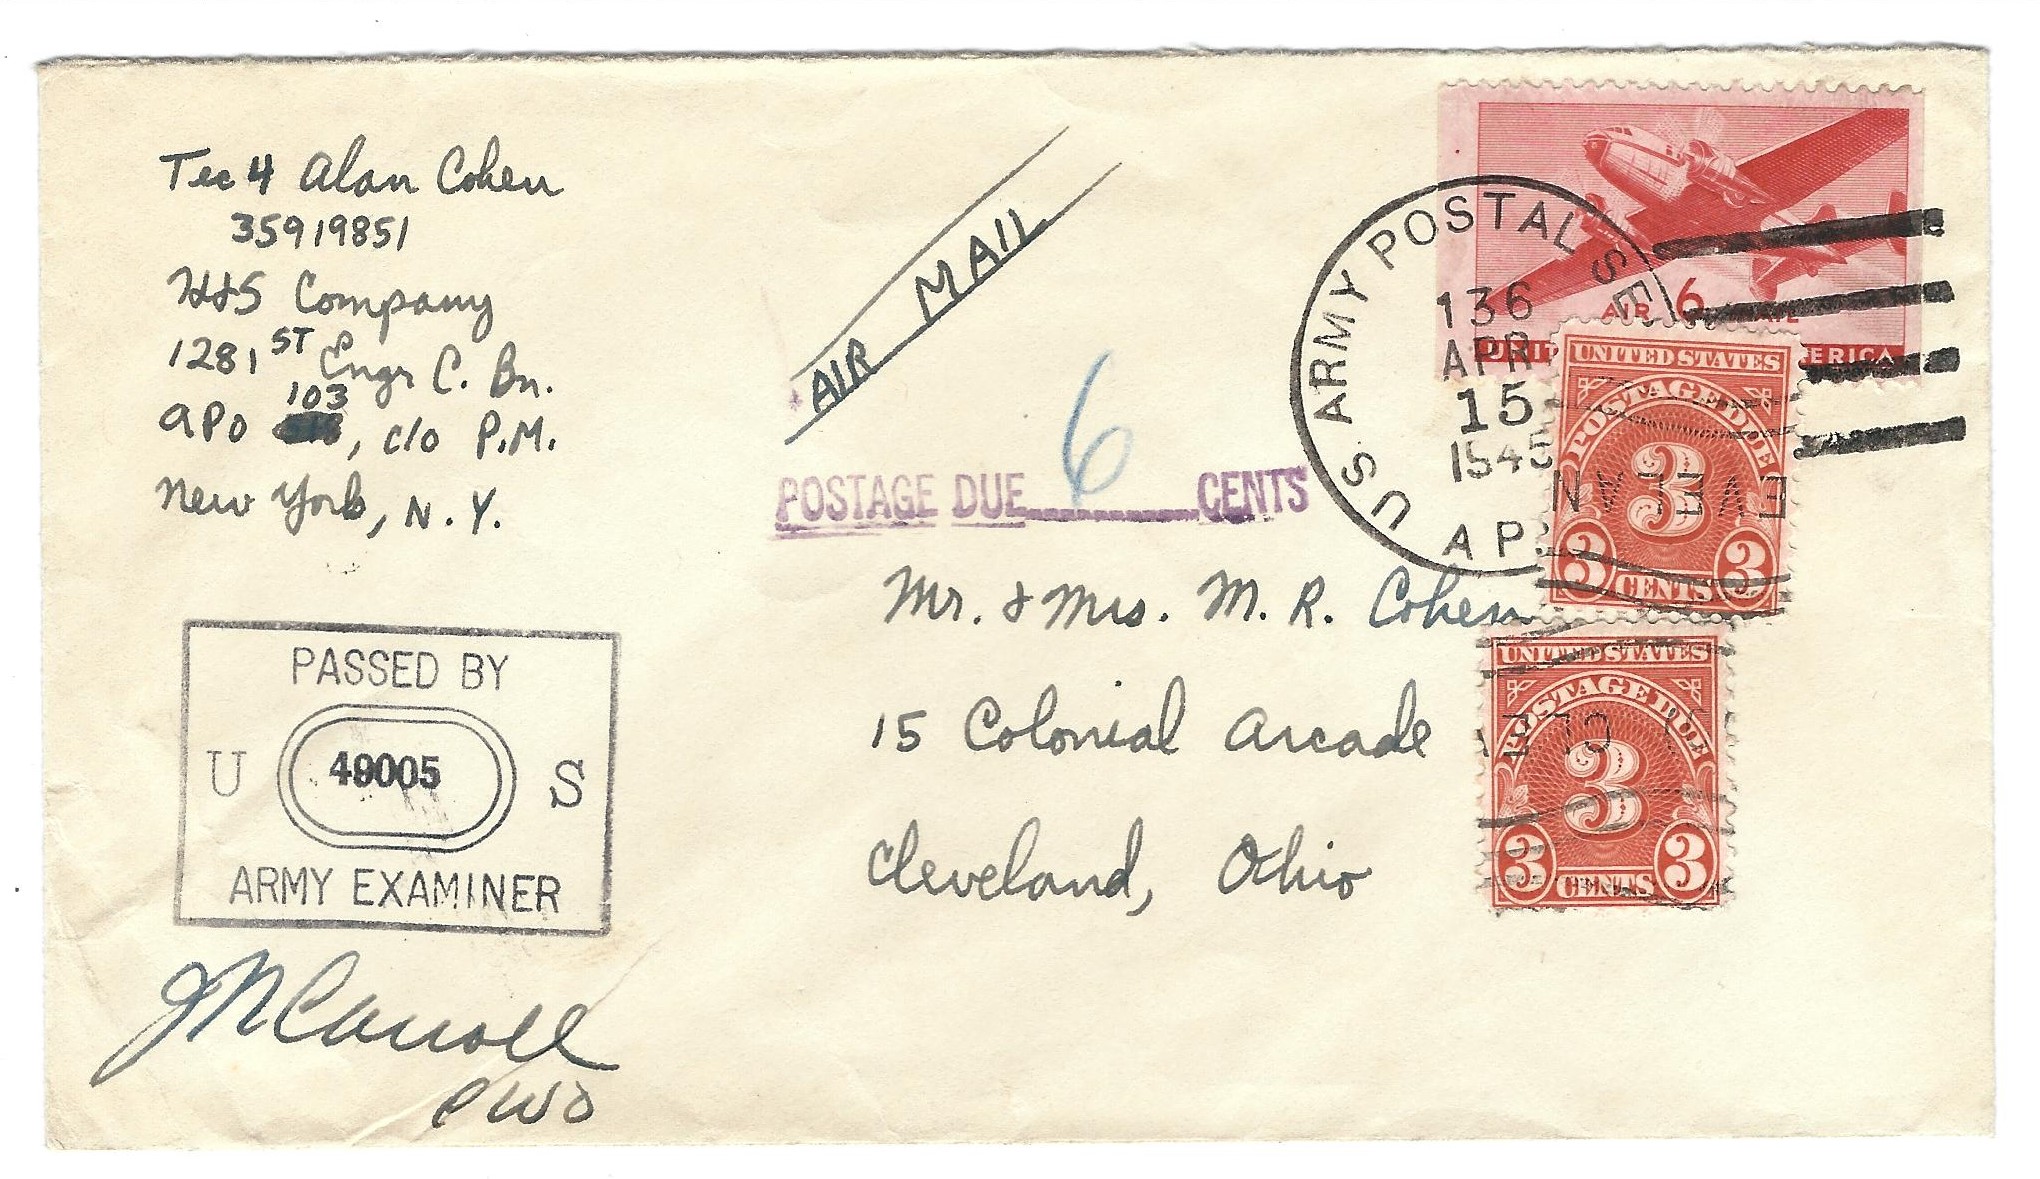 Tec 4 Alan Cohen
35919851
H&S Company
1281ST Engr C. Bn.
APO 103, c/o P.M.
New York, N.Y.
AIR MAIL
POSTAGE DUE 6 CENTS
U S ARMY POSTAL SE
136
APR
15
1545
AP
AIR 6
UNIT ERICA
UNITED STATES
POSTAGE DUE
3
3 CENTS 3
EVELAN
UNITED STATES
POSTAGE DUE
3
3 CENTS 3
CLE
Mr. & Mrs. M. R. Cohen
15 Colonial Arcade
Cleveland, Ohio
PASSED BY
U 49005 S
ARMY EXAMINER
JN Carroll
CWO